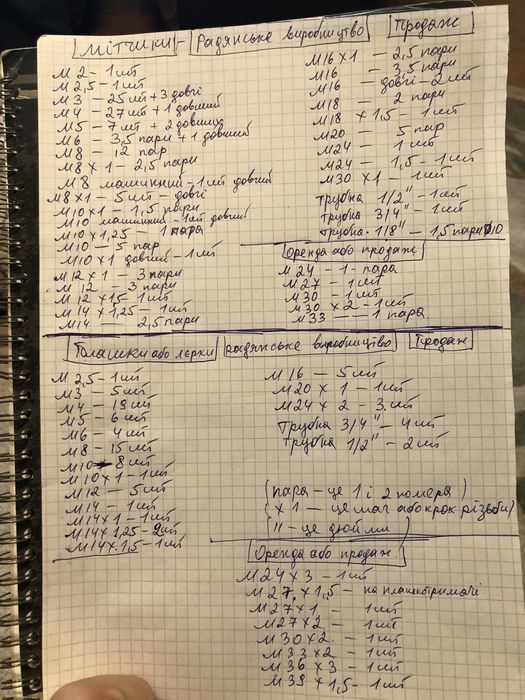 Мітчики - Радянське виробництво Продаж
М2 - 1 шт
М 2,5 - 1 шт
М 3 - 25 шт + 3 довгі
М4 - 27 шт + 1 довший
М5 - 7 шт + 2 довших
М6 - 3,5 пари + 1 довший
М8 - 12 пар
М8 х 1 - 2,5 пари
М8 машинний - 1 шт довгий
М8 х 1 - 5 шт - довгі
М10 х 1 - 1,5 пари
М10 машинний - 1 шт довгий
М10 х 1,25 - 1 пара
М10 - 5 пар
М10 х 1 довгий - 1 шт
М12 х 1 - 3 пари
М 12 - 3 пари
М 12 х 1,5 - 1 шт
М14 х 1,25 - 1 шт
М14 - 2,5 пари
М16 х 1 - 2,5 пари
М16 - 3,5 пари
М16 - довгі - 2 шт
М18 - 2 пари
М18 х 1,5 - 1 шт
М20 - 5 пар
М24 - 1 шт
М24 - 1,5 - 1 шт
М30 х 1 - 1 шт
Трубка 1/2" - 1 шт
Трубка 3/4" - 1 шт
Трубка 1/8" - 1,5 пари
Оренда або продаж
М24 - 1 - пара
М27 - 1 шт
М30 - 1 шт
М30 х 2 - 1 шт
М33 - 1 пара
Плашки або лєрки радянське виробництво Продаж
М 2,5 - 1 шт
М3 - 5 шт
М4 - 18 шт
М5 - 6 шт
М6 - 4 шт
М8 - 15 шт
М10 - 8 шт
М10 х 1 - 1 шт
М12 - 5 шт
М14 - 1 шт
М14 х 1 - 1 шт
М14 х 1,25 - 2 шт
М14 х 1,5 - 1 шт
М16 - 5 шт
М20 х 1 - 1 шт
М24 х 2 - 3 шт
Трубка 3/4" - 4 шт
Трубка 1/2" - 2 шт
(пара - це 1 і 2 номера)
(х 1 - це шаг або крок різьби)
(" - це дюйми)
Оренда або продаж
М24 х 3 - 1 шт
М27 х 1,5 - на плашкотримачі
М27 х 1 - 1 шт
М27 х 2 - 1 шт
М30 х 2 - 1 шт
М33 х 2 - 1 шт
М36 х 3 - 1 шт
М39 х 1,5 - 1 шт